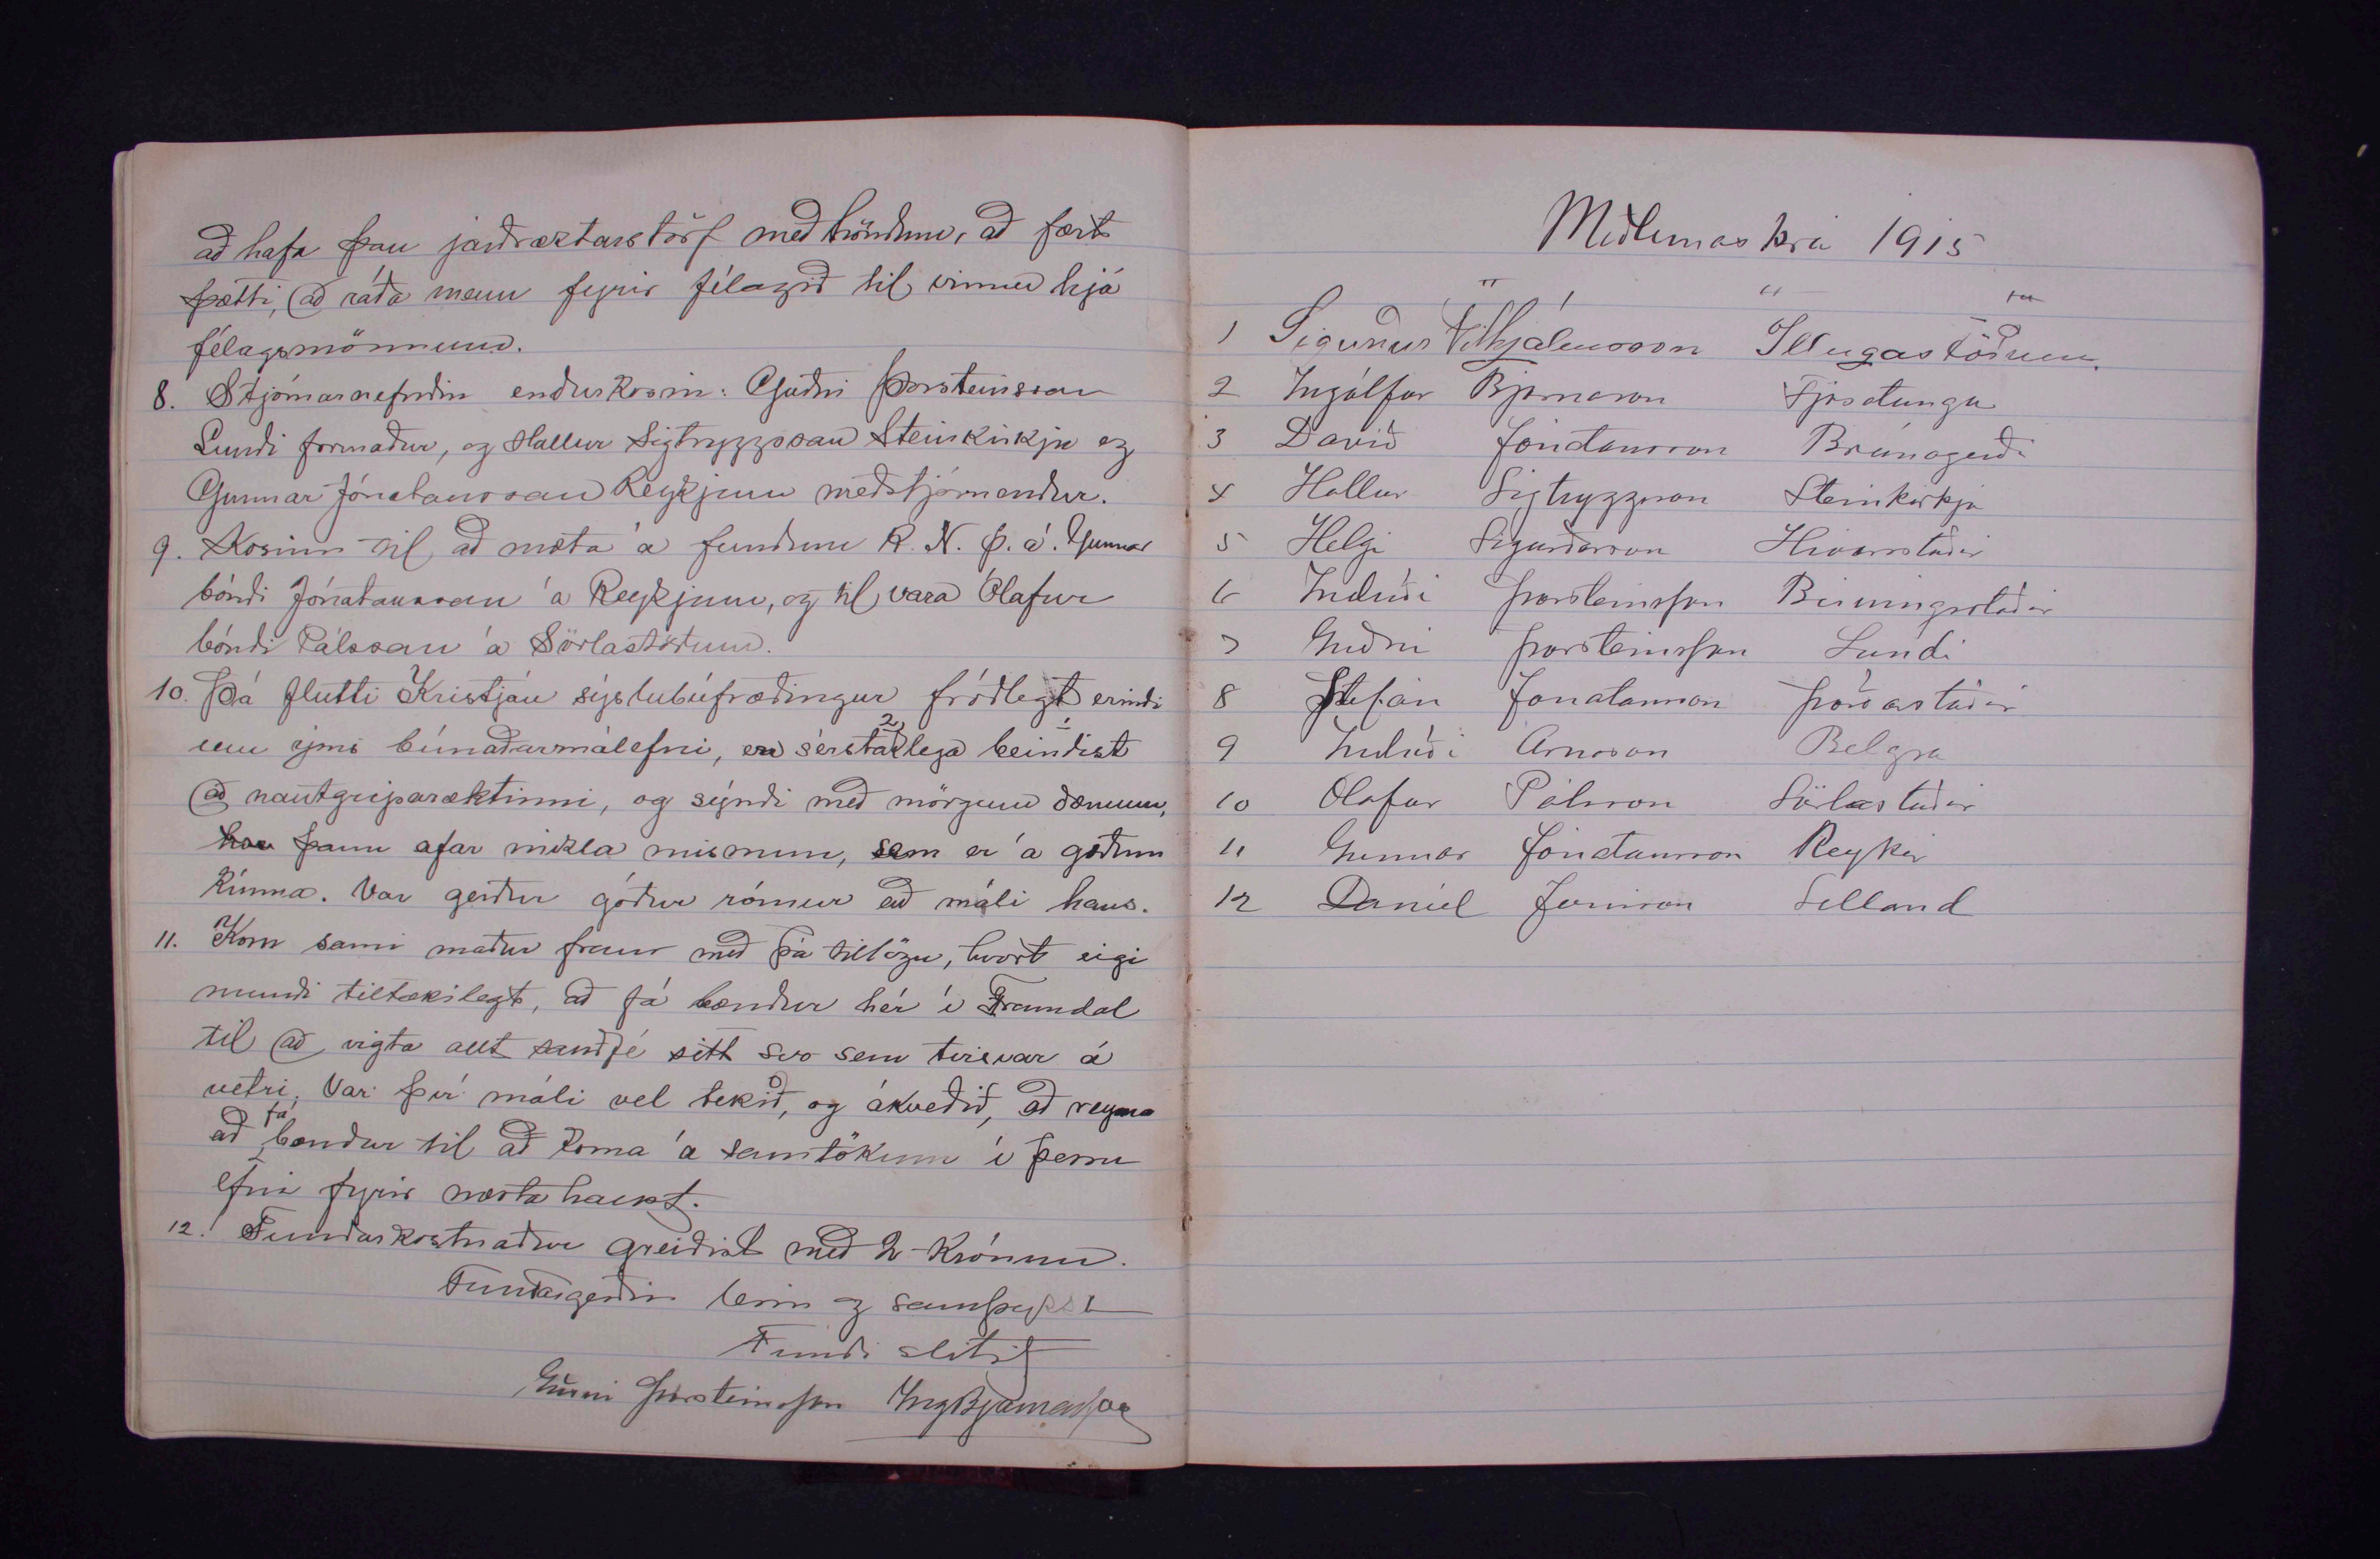 að hafa þau jarðræktarstörf með höndum, að fært
þætti, að ráða menn fyrir félagið til vinnu hjá
félagsmönnum.
8. Stjórnarnefndin endurkosin: Guðni Þorsteinsson
Lundi formaður, og Hallur Sigtryggsson Steinkirkju og
Gunnar Jónatansson Reykjum meðstjórnendur.
9. Kosinn til að mæta á fundum R. N. Þ. á. Gunnar
bóndi Jónatansson á Reykjum, og til vara Ólafur
bóndi Pálsson á Sörlastöðum.
10. Þá flutti Kristján sýslubúfræðingur fróðlegt erindi
um ýms búnaðarmálefni, er sérstaklega beindist
að nautgriparæktinni, og sýndi með mörgum dæmum,
þann afar mikla mismun, sem er á góðum
kúnna. Var gerður góður rómur að máli hans.
11. Kom sami maður fram með þá tillögu, hvort eigi
mundi tiltækilegt, að fá bændur hér í Framdal
til að vigta allt sauðfé sitt svo sem tvisvar á
vetri. Var því máli vel tekið, og ákveðið, að reyna
að fá bændur til að koma á samtökum í þessu
efni fyrir næsta haust.
12. Fundarkostnaður greiðist með 2 krónum.
Fundargerðin lesin og samþykt
Fundi slitið
Guðni Þorsteinsson Ing Bjarnason
Meðlimaskrá 1915
1 Sigurður Vilhjálmsson Illugastöðum.
2 Ingólfur Bjarnason Fjósatunga
3 Davíð Jónatansson Brúnagerði
4 Hallur Sigtryggsson Steinkirkja
5 Helgi Sigurðsson Hróarsstaðir
6 Indriði Þorsteinsson Birningsstaðir
7 Guðni Þorsteinsson Lundi
8 Stefán Jónatansson Þórðarstaðir
9 Indriði Arnason Belgsá
10 Olafur Pálsson Sörlastaðir
11 Gunnar Jónatansson Reykir
12 Daníel Jónsson Selland